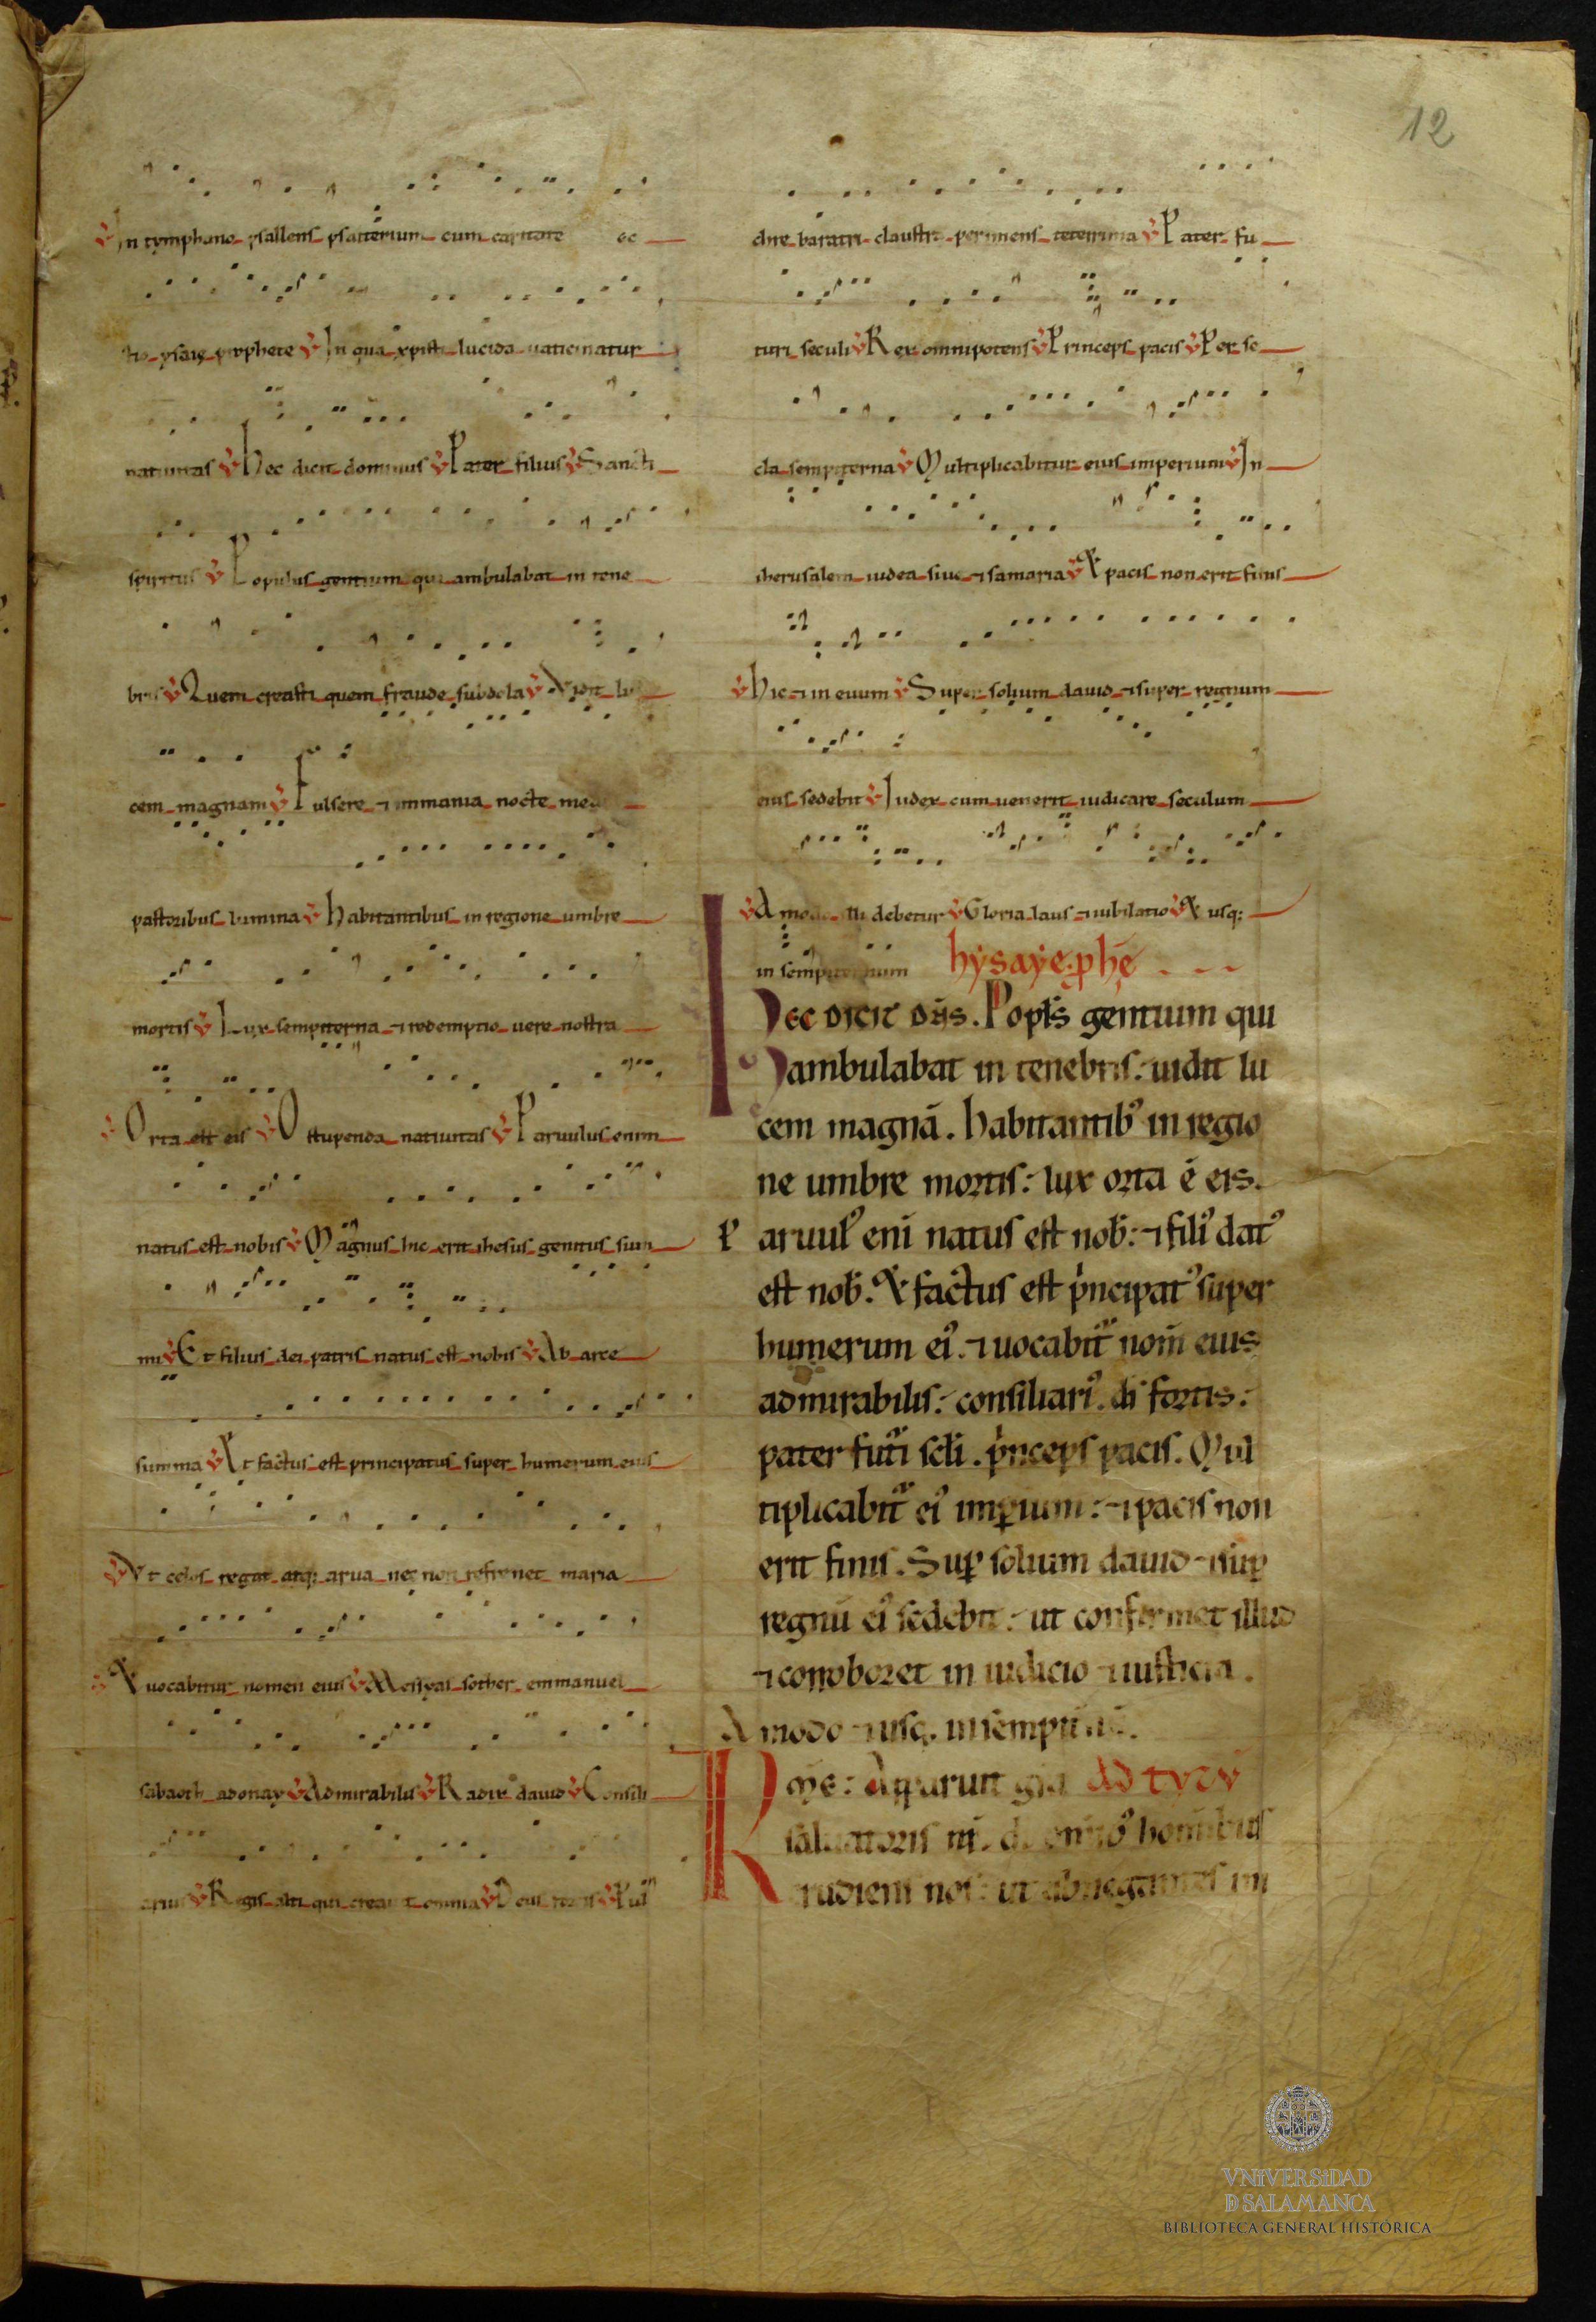 12
℣ In tymphano psallens psalterium cum caritate ec
tio ysaye prophete ℣ In qua xpisti lucida uaticinatur
natiuitas ℣ Hec dicit dominus ℣ Pater filius ℣ Sancti
spiritus ℣ Populus gentium qui ambulabat in tene
bris ℣ Quem creasti quem fraude subdola ℣ Vidit lu
cem magnam ℣ Fulsere ⁊ inmania nocte
pastoribus lumina ℣ habitantibus in regione umbre
mortis ℣ Lux sempiterna ⁊ redemptio uere nostra
℣ Orta est eis ℣ O stupenda natiuitas ℣ Paruulus enim
natus est nobis ℣ Magnus hic erit ihesus genitus sum
mi ℣ Et filius dei patris natus est nobis ℣ Ab arce
summa ℣ Et factus est principatus super humerum eius
℣ Vt celos regat atq; arua nec non refrenet maria
℣ & uocabitur nomen eius ℣ Messyas sother emmanuel
sabaoth adonay ℣ Admirabilis ℣ Radix dauid ℣ Consili
arius ℣ Regis alti qui creauit omnia ℣ Deus fortis ℣ Pul
chre baratri claustra perimens teterrima ℣ Pater fu
turi seculi ℣ Rex omnipotens ℣ Princeps pacis ℣ Per se
cla sempiterna ℣ Multiplicabitur eius imperium ℣ In
iherusalem iudea siue ⁊ samaria ℣ & pacis non erit finis
℣ hic ⁊ in euum ℣ Super solium dauid ⁊ super regnum
eius sedebit ℣ Iudex cum uenerit iudicare seculum
℣ A modo illi debetur ℣ Gloria laus ⁊ iubilatio ℣ & usq;
in sempiternum hysaye ꝓhe
Hec dicit dn̄s. Popl̄s gentium qui
ambulabat in tenebris: uidit lu
cem magnā. habitantibꝰ in regio
ne umbre mortis: lux orta ē eis.
Paruulꝰ enī natus est nob: ⁊ filiꝰ datꝰ
est nob. & factus est pncipatꝰ super
humerum eiꝰ. ⁊ uocabit nom̄ eius
admirabilis: consiliariꝰ. ds fortis:
pater futi scli. pnceps pacis. Mul
tiplicabit eiꝰ imꝑium: ⁊ pacis non
erit finis. Suꝑ solium dauid ⁊ suꝑ
regnū eiꝰ sedebit: ut confirmet illud
⁊ corroboret in iudicio ⁊ iusticia.
A modo ⁊ usq. in sempitnū.
Kme: Apparuit gra Ad tycū
saluatoris nri. di omibꝰ hominibus
erudiens nos: ut abnegantes im
VNiVERSiDAD
D SALAMANCA
BIBLIOTECA GENERAL HISTÓRICA